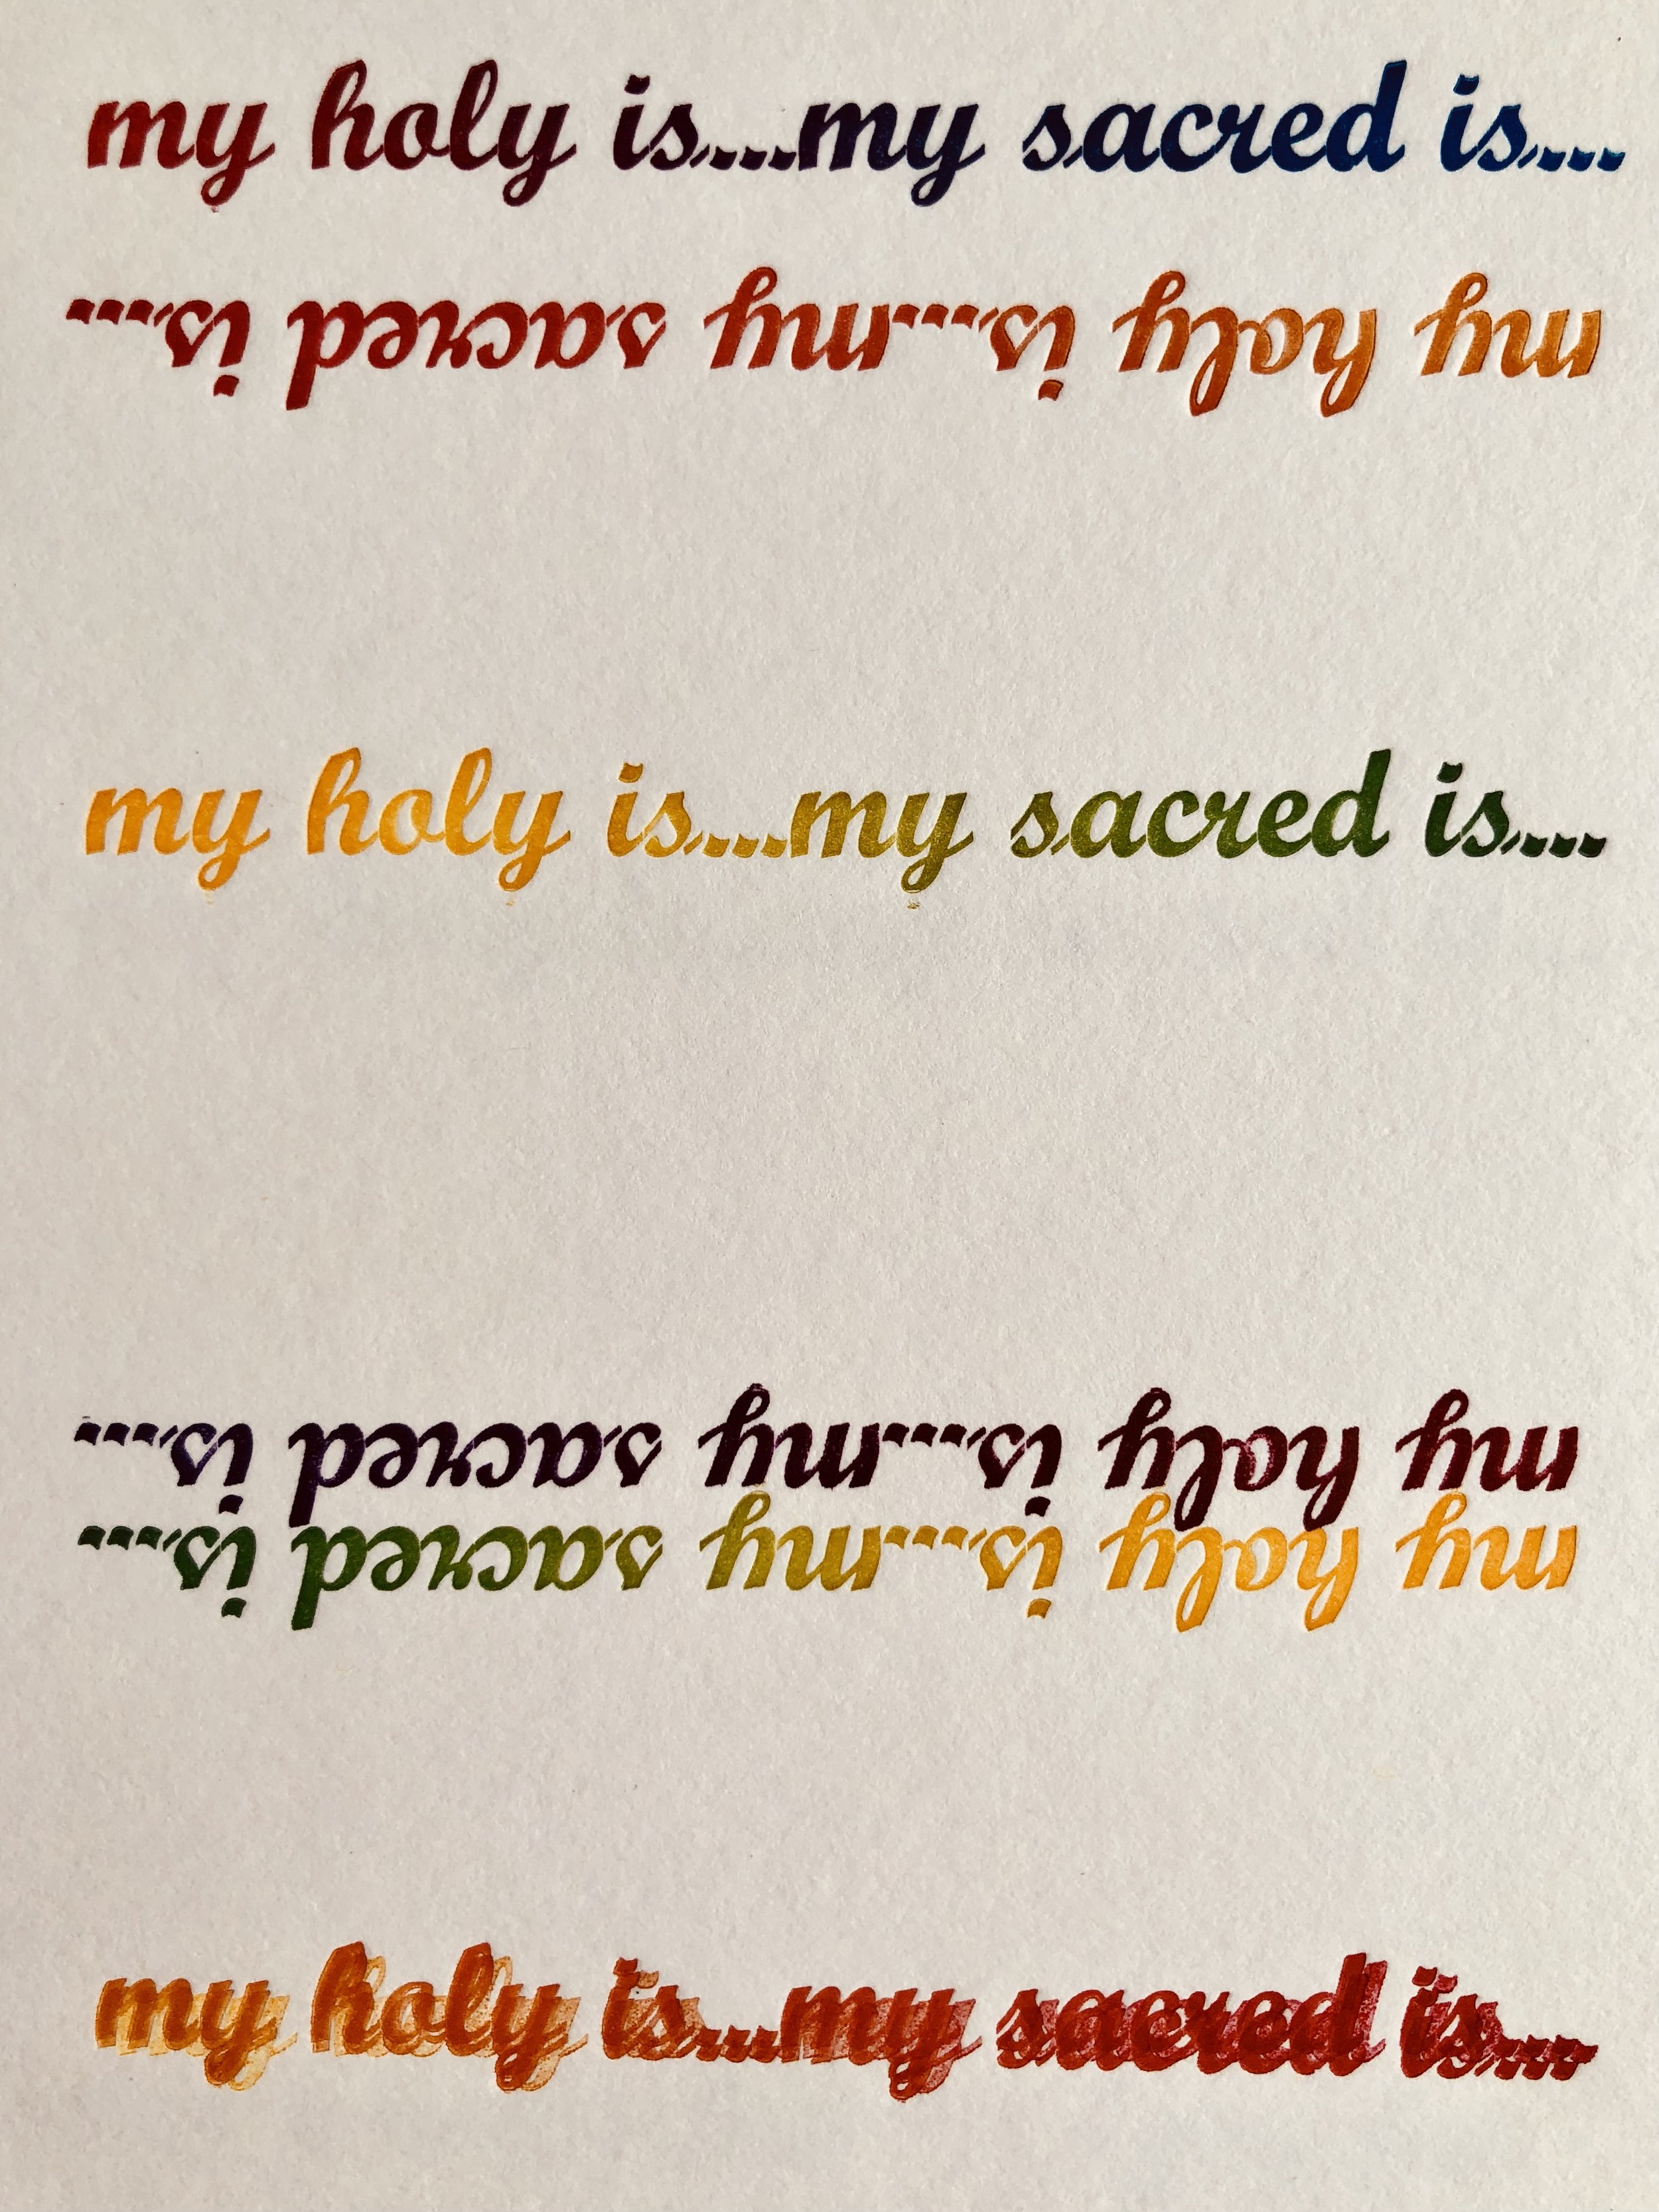 my holy is...my sacred is...
my holy is...my sacred is...
my holy is...my sacred is...
my holy is...my sacred is...
my holy is...my sacred is...
my holy is...my sacred is...